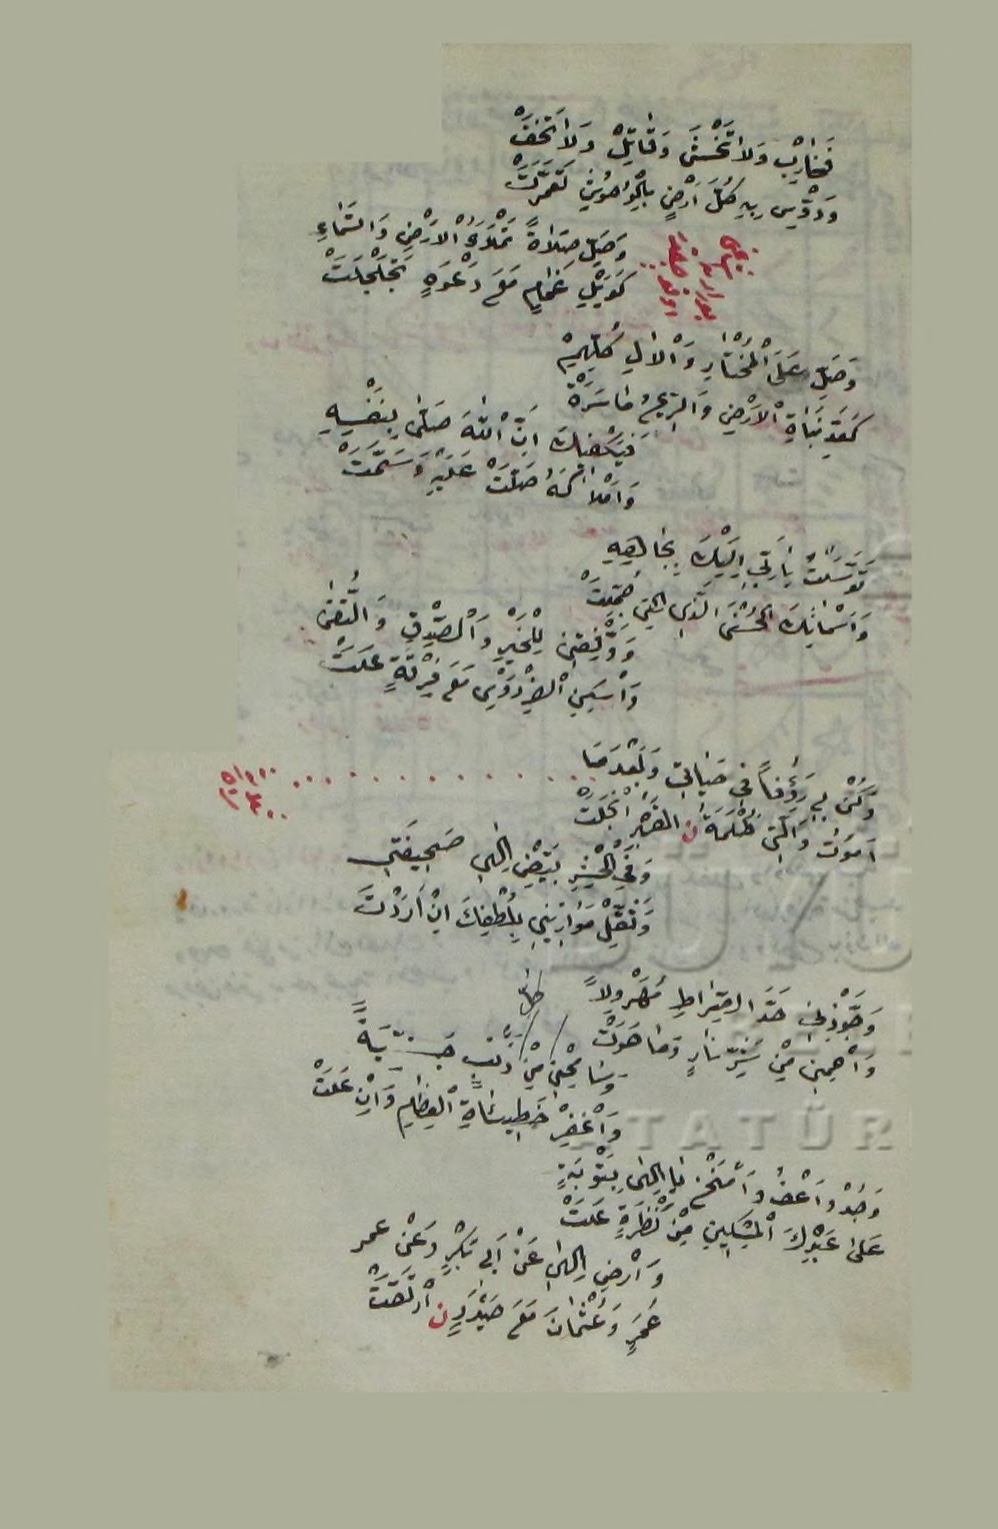 فَحَارِبْ وَلَا تَخْشَى وَقَاتِلْ وَلَا تَخَفْ
وَدُوْسِ بِهِ كُلَّ اَرْضٍ بِالْوُحُوْشِ تَعَمَّرَتْ
وَصَلِّ صَلَاةً تَمْلَاءُ الْاَرْضِ وَالسَّمَاءِ
كَوَبْلِ غَمَامٍ مَعَ رَعْوَدٍ تَجَلْجَلَتْ
وَصَلِّ عَلَى الْمُخْتَارِ وَالْاٰلِ كُلِّهِمْ
كَعَدِّ نَبَاتِ الْاَرْضِ وَالرِّيْحِ مَا سَرَتْ
فَيَكْفِيْكَ اَنَّ اللّٰهَ صَلّٰى بِنَفْسِهِ
وَاَمْلَاكَهُ صَلَّتْ عَلَيْهِ وَسَلَّمَتْ
تَوَسَّلْتُ يَا رَبِّ اِلَيْكَ بِجَاهِهِ
وَاَسْمَائِكَ الْحُسْنَى الَّذِى الَّتِى جُمِعَتْ
وَوَفِّقْنِى لِلْخَيْرِ وَالصِّدْقِ وَالتُّقٰى
وَاَسْكِنِى الْفِرْدَوْسِ مَعَ فِرْقَةٍ عَلَتْ
وَكُنْ بِى رَؤُفًا فِى حَيَاتِى وَبَعْدَمَا
اَمُوْتُ وَاَلْقٰى ظُلْمَةَ ن الْقَبْرِ اَنْجَلَتْ
وَفِى الْحَشْرِ بَيِّضْ اِلٰهِى صَحِيْفَتِى
وَثَقِّلْ مَوَازِيْنِى بِلُطْفِكَ اِنْ اَرَدْتَ
وَجَوِّزْنِى حَدَّ الصِّرَاطِ مُهَرْوِلًا
وَاَحْمِنِى مِنْ شَرِّ نَارٍ وَمَا حَوَتْ
وَسَامِحْنِى مِنْ كُلِّ ذَنْبٍ جَنَيْتَهُ
وَاغْفِرْ خَطِيْئَاتِ الْعِظَامِ وَاِنْ عَلَتْ
وَجُدْ وَاعْفُ وَامْنَحْ يَا اِلٰهِى بِتَوْبَةٍ
عَلٰى عَبْدِكَ الْمِسْكِيْنِ مِنْ نَظْرَةٍ عَلَتْ
وَارْضِ اِلٰهِى عَنْ اَبِى بَكْرٍ وَعَنْ عمر
عُمَرِ وَعُثْمَانَ مَعَ حَيْدَرٍ ن ارْتَضَتْ